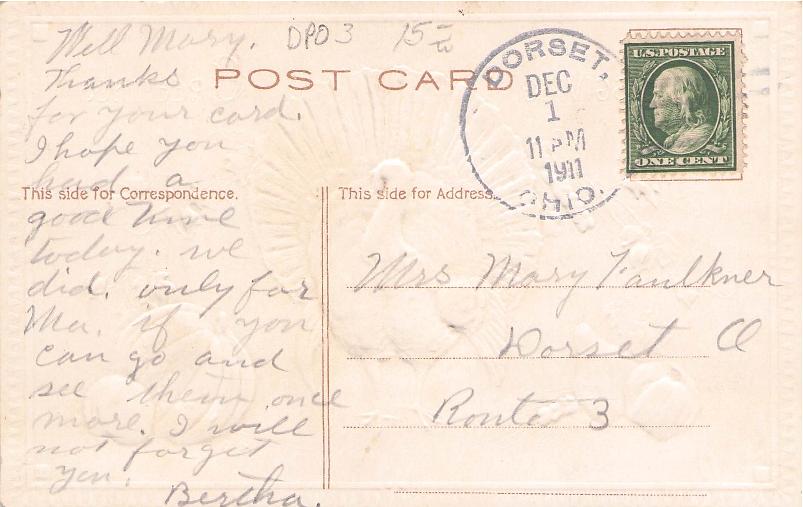 Well Mary. DPO3 15
Thanks
POST CARD
for your card.
I hope you
had a
This side for Correspondence.
good time
today. we
did. only for
Ma. if you
can go and
see them once
more. I will
not forget
you.
Bertha.
DORSET,
DEC
1
11 PM
1911
OHIO.
U.S. POSTAGE
ONE CENT
This side for Address.
Mrs Mary Faulkner
Dorset O
Route 3